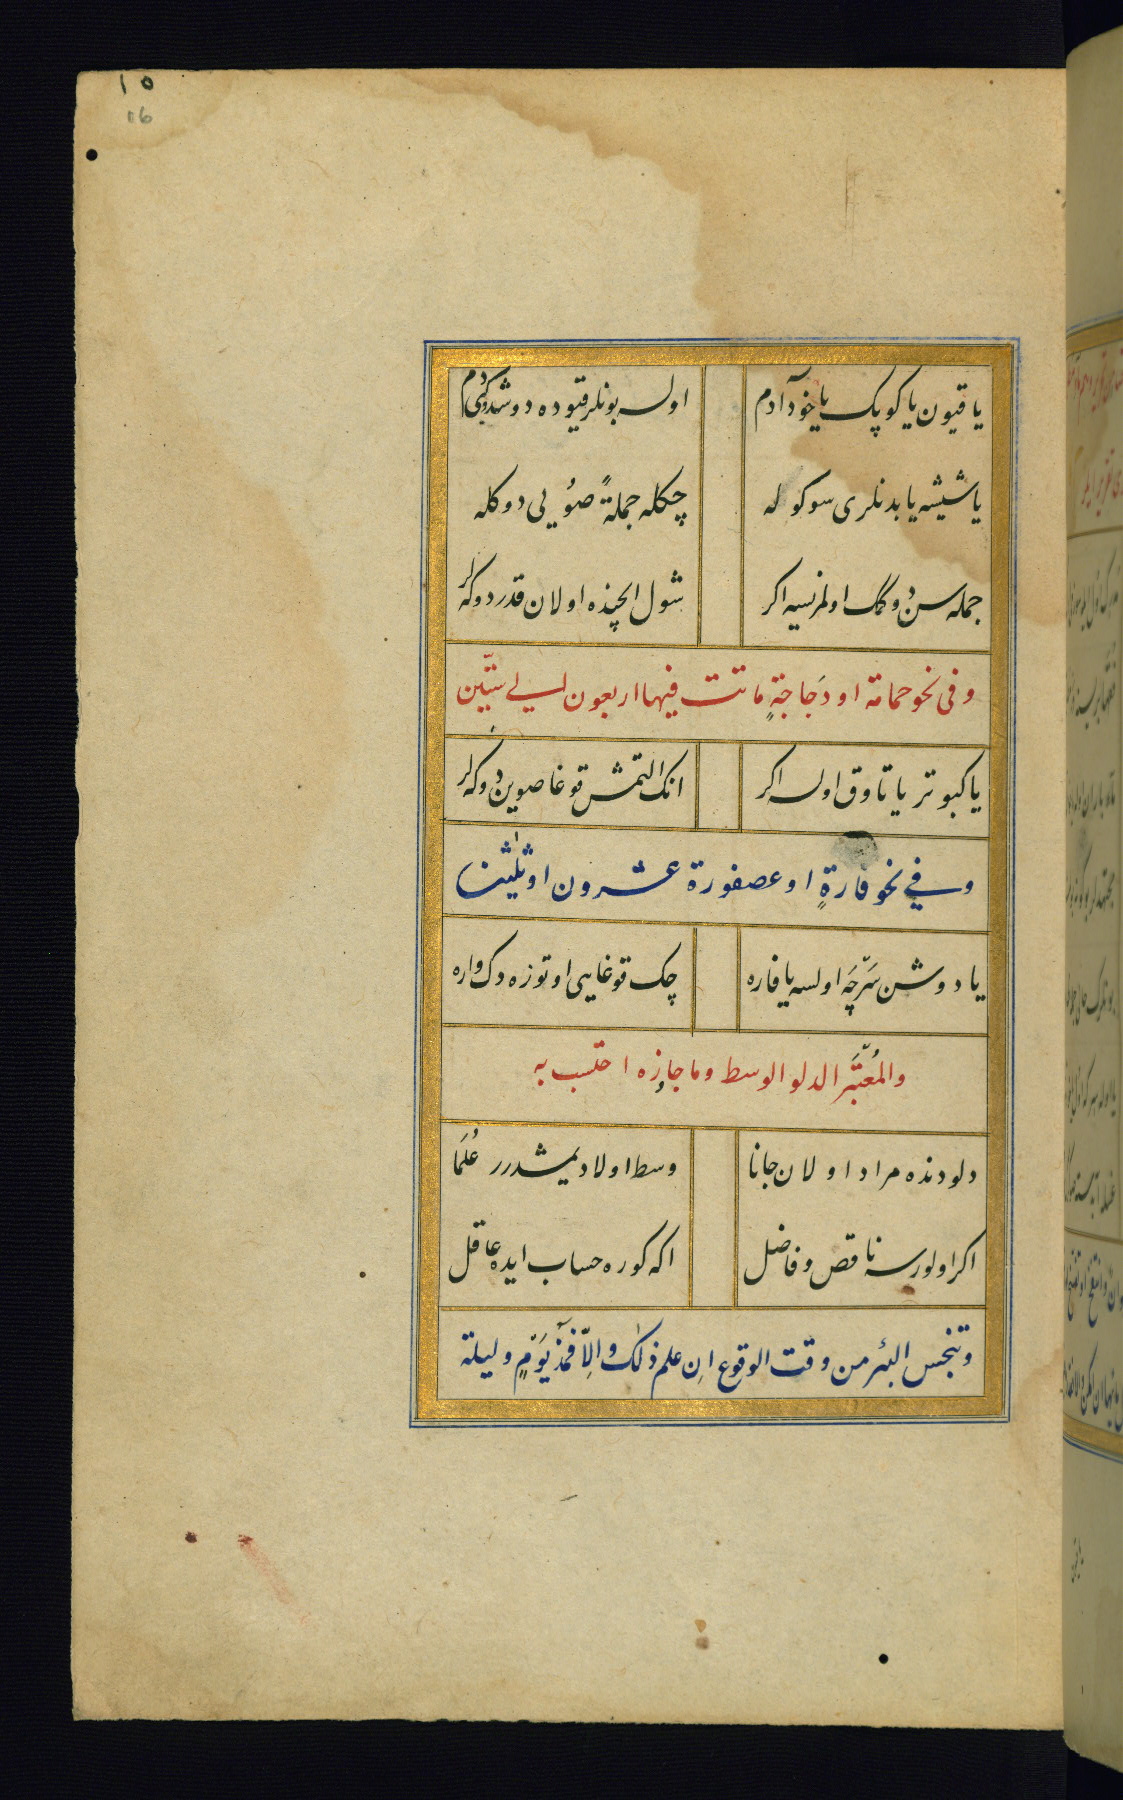 ١٥
16
يا قيون يا كوپك يا خود آدم اولسه بونلر قيوده دوشدوكی دم
يا شيشه يا بدنلری سوكوله چكله جملةً صُويی دوكله
جمله سن دوكمك اولمزسه اكر شول ايچنده اولان قدر دوكه لر
وفی نحو حمامة او دَجاجةٍ ماتت فيها اربعون الی ستّين
يا كبوتر يا تاوق اولسه اكر انك التمش قوغا صوين دوكه لر
وفی نحو فارةٍ او عصفورة عشرون او ثلٰثين
يا دوشن سَرچَه اولسه يا فاره چك قوغايی اوتوزه دك واره
والمُعْتَبَر الدلو الوسط وما جاوزه احتسب به
دلودنده مراد اولان جانا وسط اولا ديمشدرر عُلَمَا
اكر اولورسه ناقص وفاضل اكه كوره حساب ايده عاقل
وتنجس البئر من وقت الوقوع اِن علم ذلك والّا فمذ يَوْمٍ وليلة